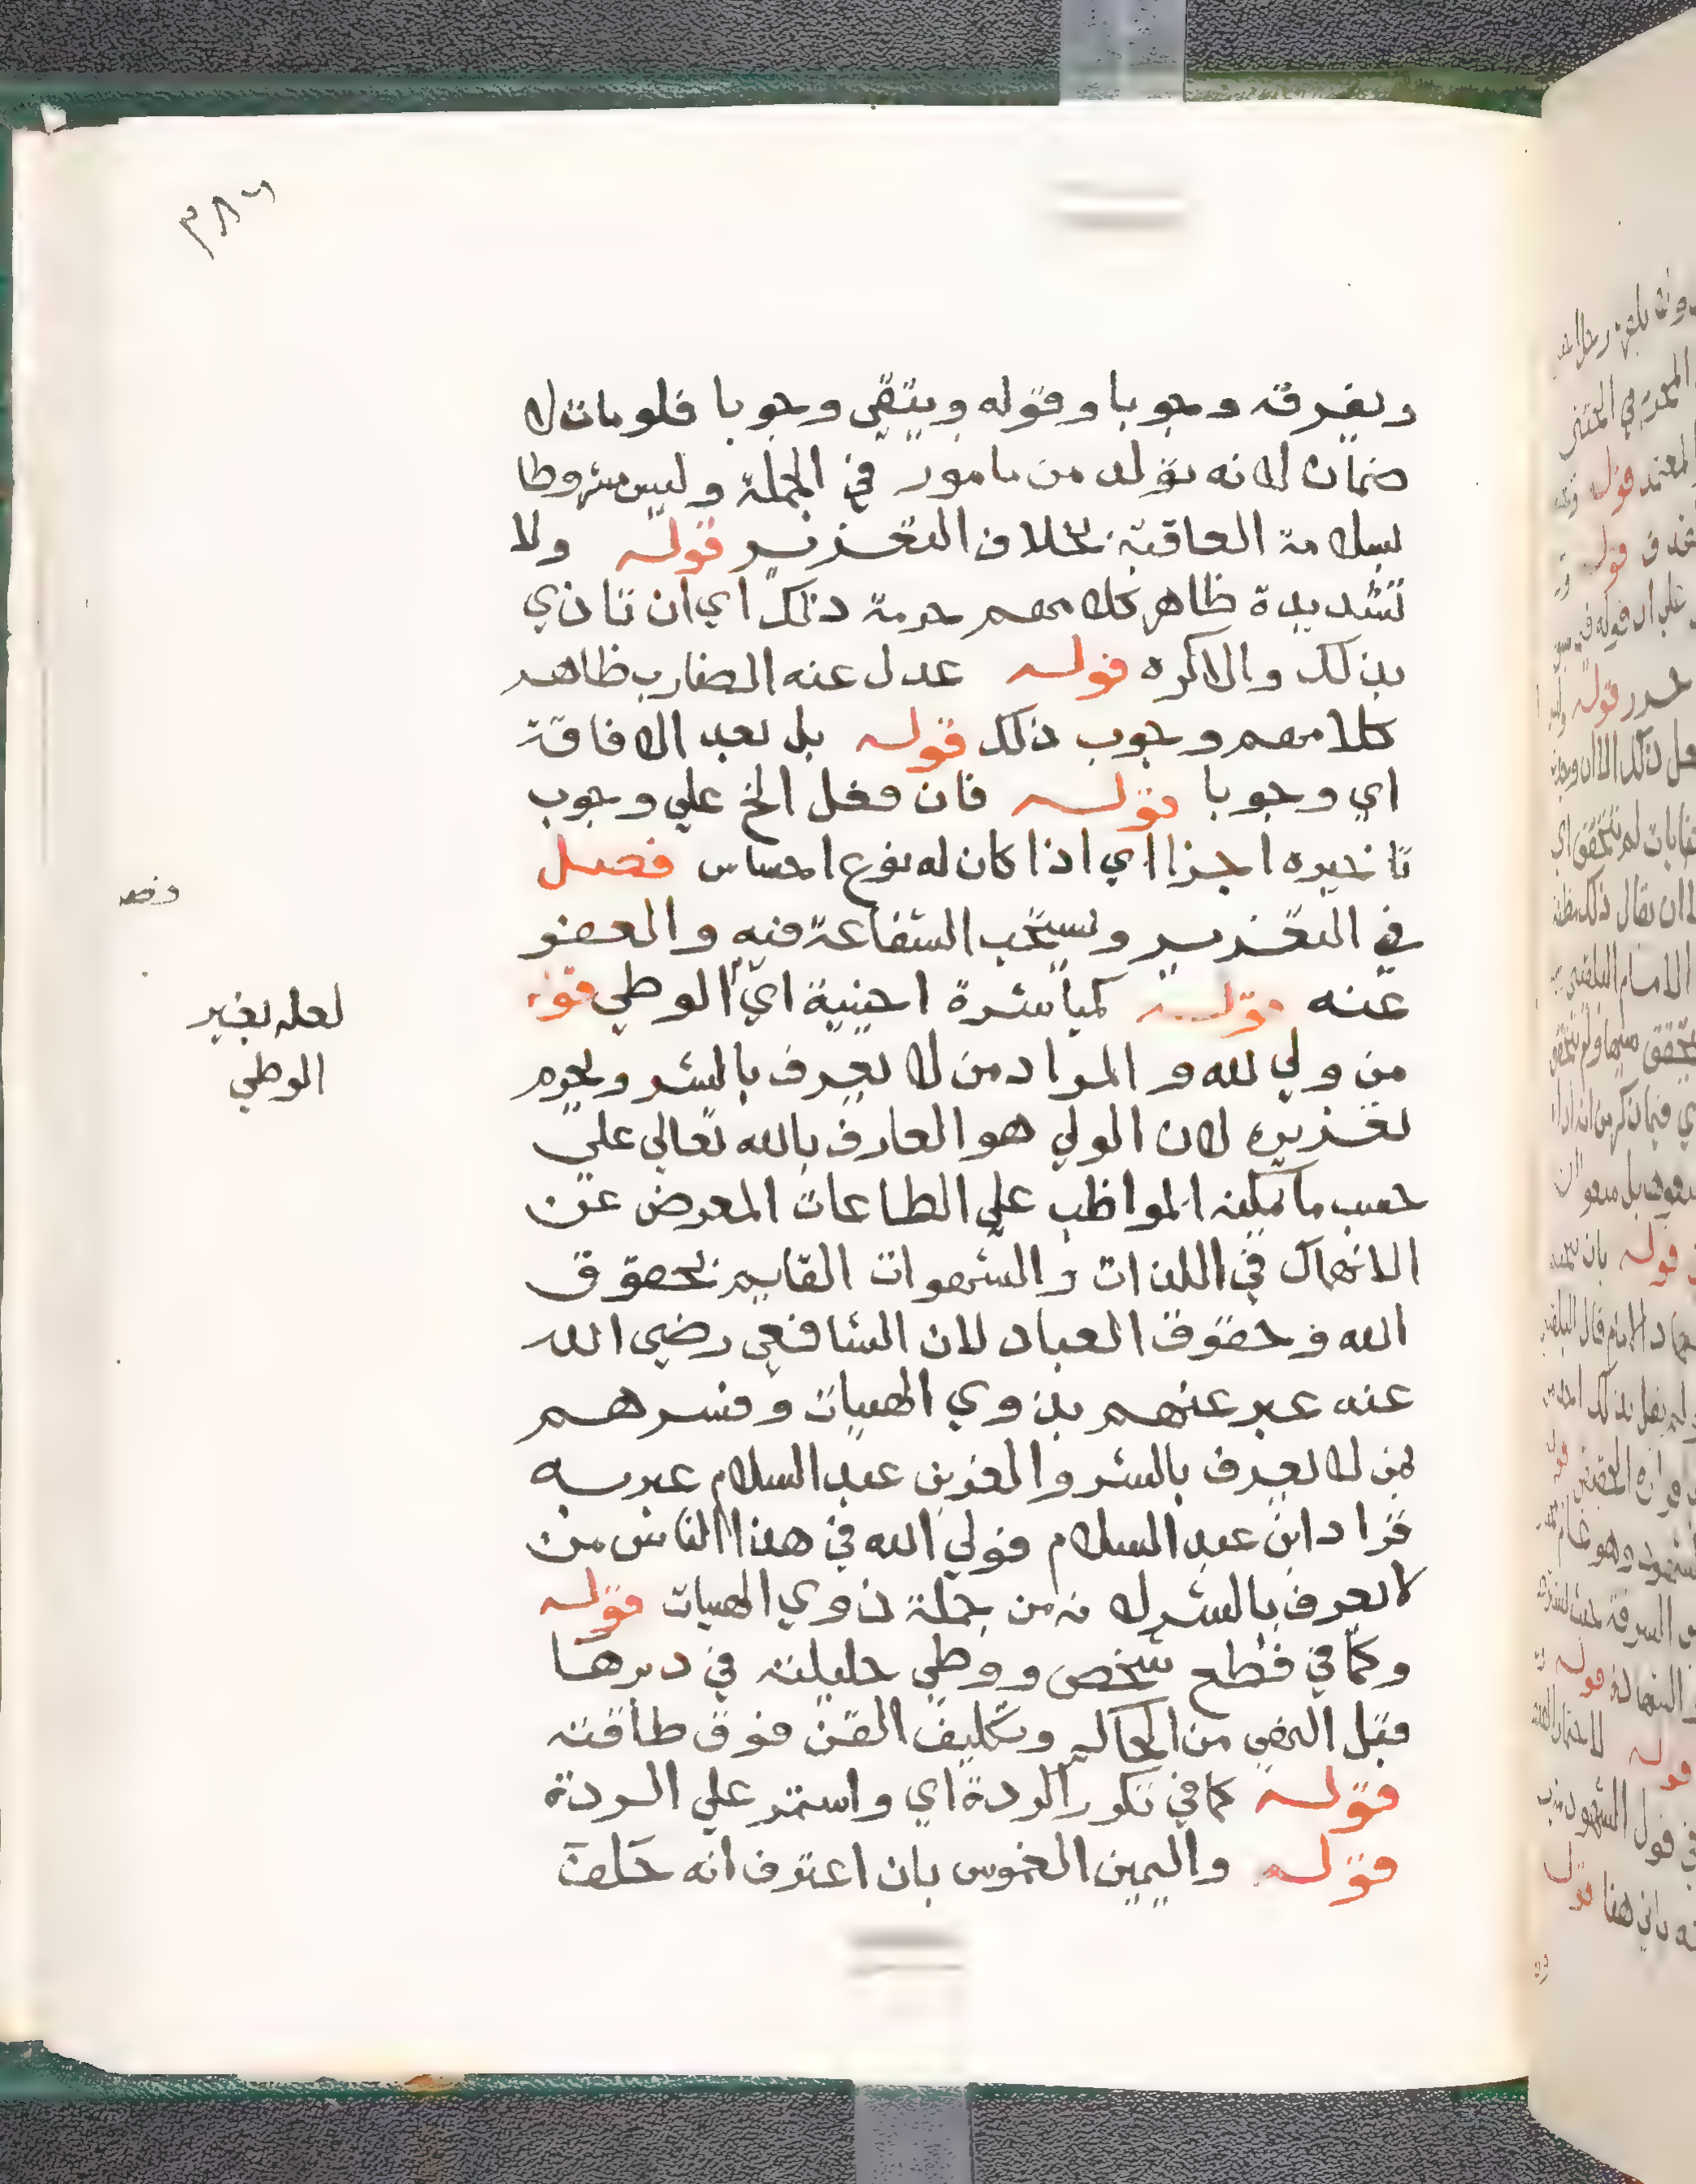 ٣٨٦
ويفرقه وجوبا وقوله ويتقي وجوبا فلومات لا
ضمان لانه تولد من مامور في الجملة وليس مشروطا
بسلامة العاقبة بخلاف التعزير قوله ولا
شديدة ظاهر كلامهم حرمة ذلك اي ان تاذي
بذلك والاكره قوله عدل عنه الضارب ظاهر
كلامهم وجوب ذلك قوله بل بعد الافاقة
اي وجوبا قوله فان فعل الخ علي وجوب
تاخيره اجزا اي اذا كان له نوع احساس فصل
في التعزير ويستحب الشفاعة فيه والعفو
عنه قوله كمباشرة اجنبية اي الوطي قوله
من ولي لله والمراد من لا يعرف بالشر ويحرم
تعزيره لان الولي هو العارف بالله تعالي علي
حسب ما يمكنه المواظب علي الطاعات المعرض عن
الانهماك في اللذات والشهوات القايم بحقوق
الله وحقوق العباد لان الشافعي رضي الله
عنه عبر عنهم بذوي الهيات وفسرهم
بمن لا يعرف بالشر والعز بن عبد السلام عبر به
فزاد ابن عبد السلام فولي الله في هذا الناس من
لا يعرف بالشر لانه من جملة ذوي الهيات قوله
وكما في قطع شخص ووطي حليلته في دبرها
قبل النهي من الحاكم وتكليف القن فوق طاقته
قوله كما في تكرر الردة اي واستمر علي الردة
قوله واليمين الغموس بان اعترف انه حلف
لعله بغير
الوطي